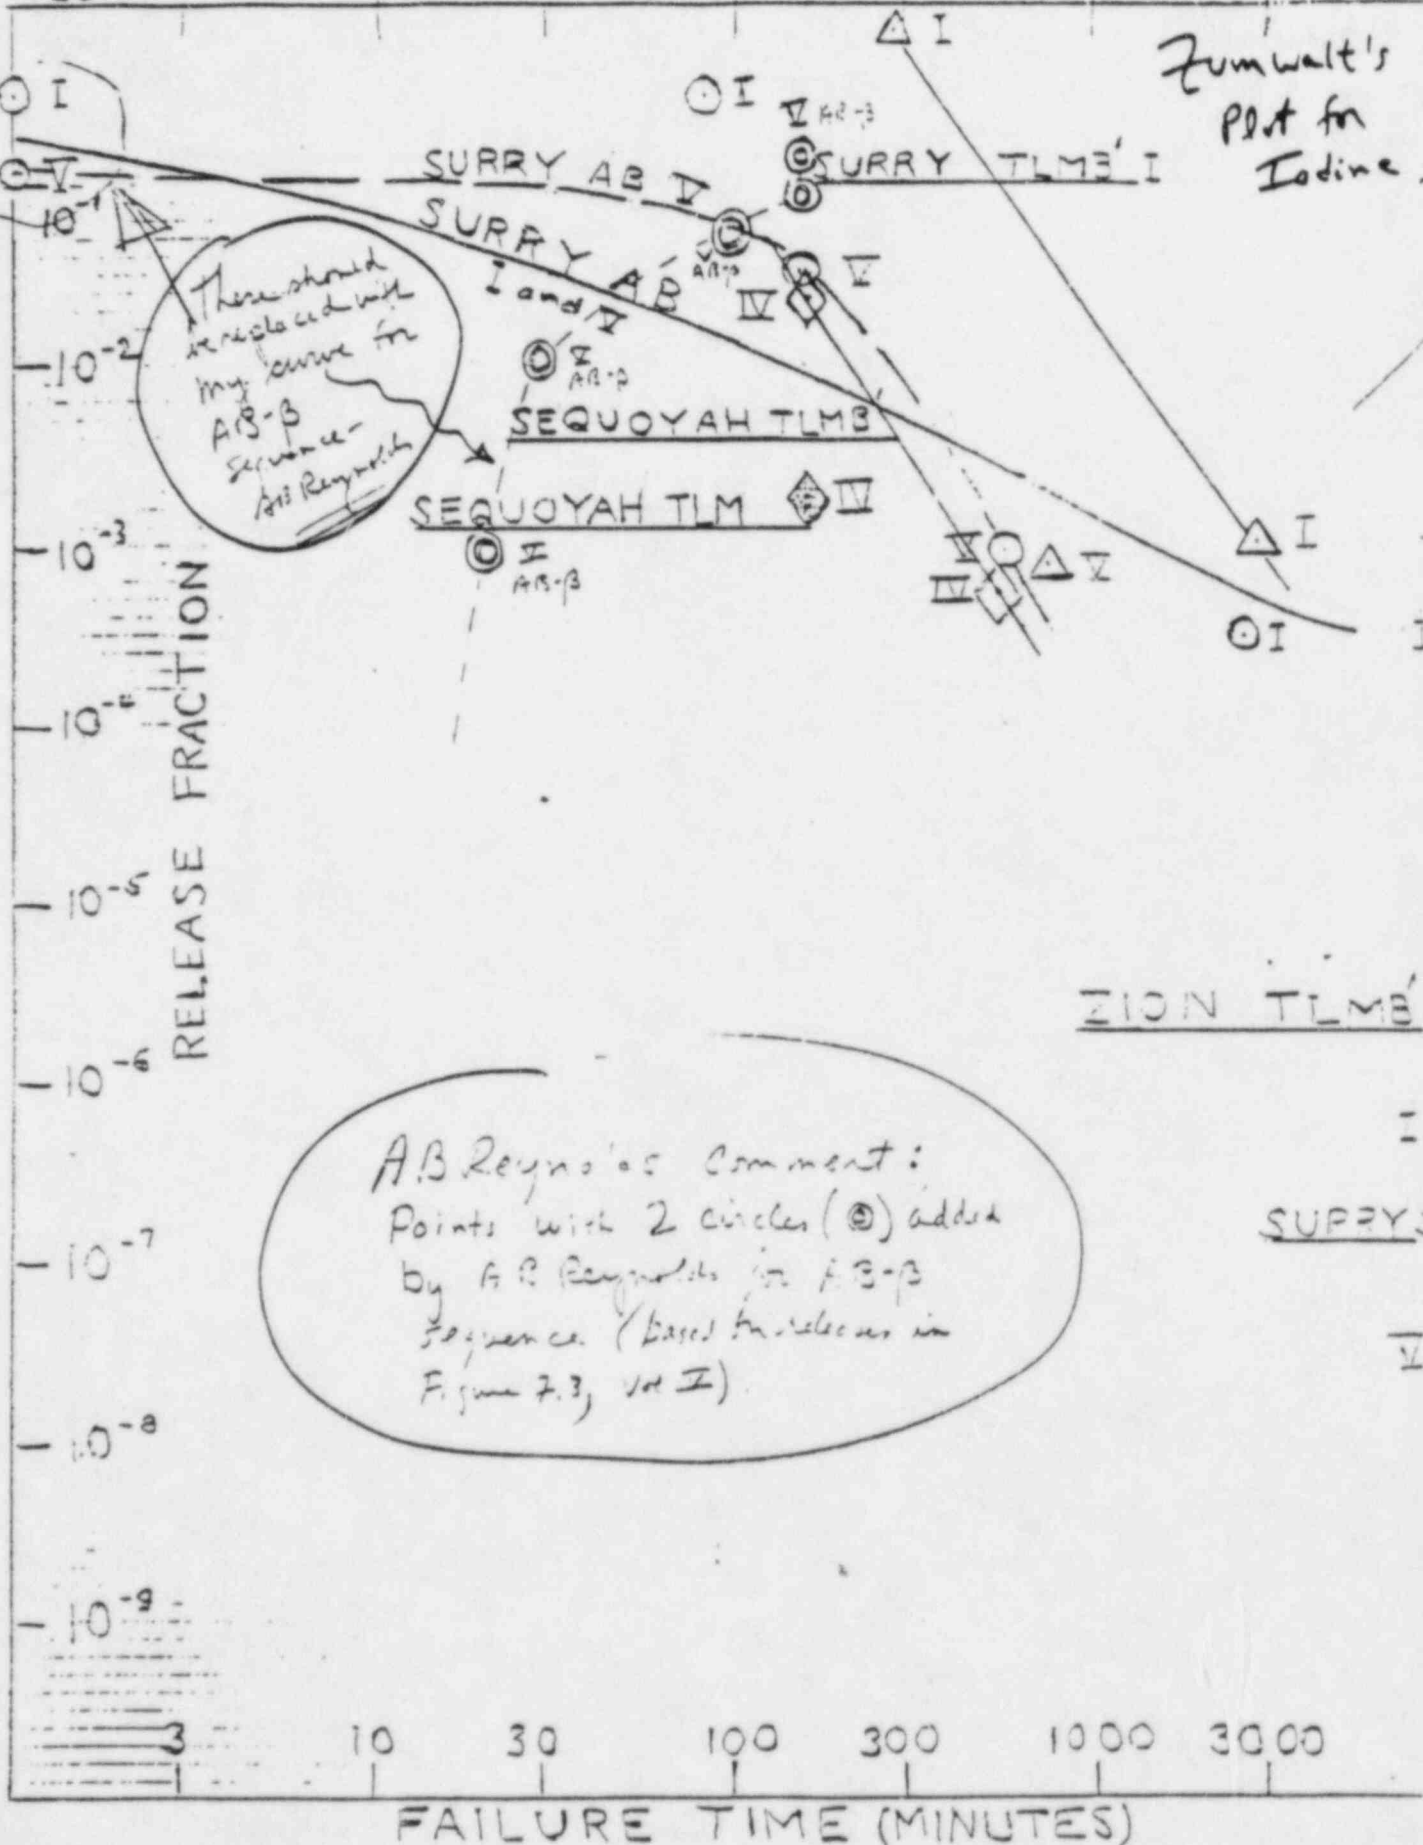 Zumwalt's
Plot for
Iodine
I
I
I
V AB-β
V
SURRY AB V
SURRY TLMB' I
10⁻¹
SURRY AB
I and V
AB-β
V
IV
These should
be replaced with
my curve for
AB-β
sequence-
AB Reynolds
10⁻²
V
AB-β
SEQUOYAH TLMB'
SEQUOYAH TLM
IV
10⁻³
V
AB-β
V
V
IV
I
I
I
10⁻⁴
RELEASE FRACTION
10⁻⁵
ZION TLMB'
10⁻⁶
I
A.B Reynolds comment:
Points with 2 circles (◎) added
by A B Reynolds for AB-β
sequence (based on releases in
Figure 7.3, Vol V)
10⁻⁷
SURRY
V
10⁻⁸
10⁻⁹
3 10 30 100 300 1000 3000
FAILURE TIME (MINUTES)